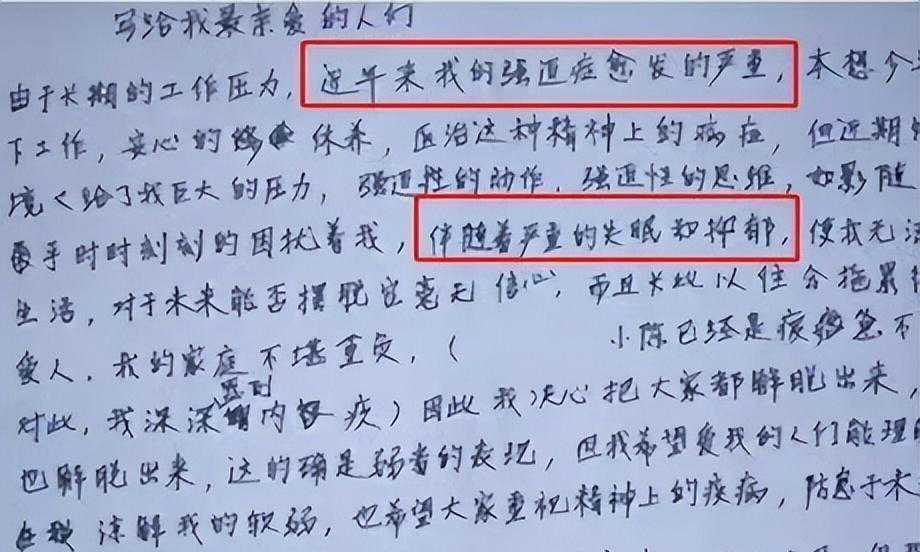 写给我最亲爱的人们
由于长期的工作压力，近年来我的强迫症愈发的严重，本想今
下工作，安心的休养，医治这种精神上的病症，但近期
境〈给了我巨大的压力，强迫性的动作，强迫性的思维，如影随
乎时时刻刻的困扰着我，伴随着严重的失眠和抑郁，使我无法
生活，对于未来能否摆脱它毫无信心，而且长此以往会拖累
爱人，我的家庭不堪重负，（ 小陈已经是疲惫不
对此，我深深感到内疚）因此我决心把大家都解脱出来，
也解脱出来，这的确是弱者的表现，但我希望爱我的人们能理
谅解我的软弱，也希望大家重视精神上的疾病，防患于未